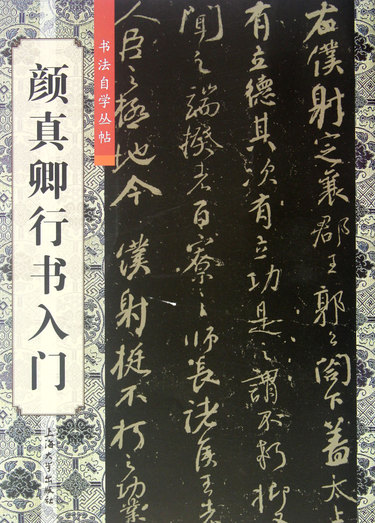 颜真卿行书入门
上海大学出版社
书法自学丛帖
右僕射定襄郡王郭公閤下蓋太上
有立德其次有立功是之謂不朽抑
聞之端揆者百寮之師長諸侯王者
人臣之極地今僕射挺不朽之功業